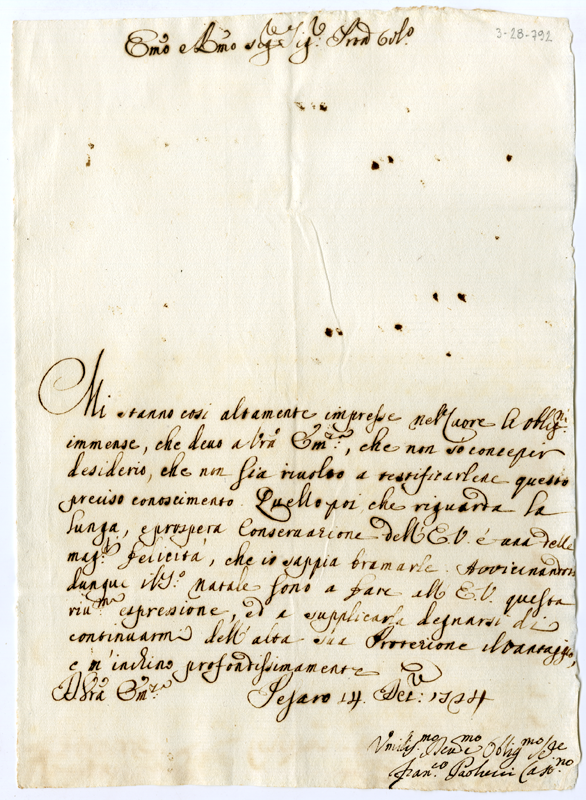 3-28-792
Emo e Rmo Sig.re Sig.re Pron Colo
Mi stanno così altamente impresse nel Cuore le oblig.ni
immense, che devo a Vra Em.za, che non so conceper
desiderio, che non sia rivolto a testificarlene questo
preciso conoscimento. Quello poi che riguarda la
lunga, e prospera Conservazione dell'E.V. è una delle
magg.ri felicità, che io sappia bramarle. Avvicinandosi
dunque il S.o natale sono a fare all'E.V. questa
riv.ma espressione, ed a supplicarla degnarsi di
continuarmi dell'alta sua Protezione il vantaggio,
e m'inchino profondissimamente
D Vra Em.za Pesaro 14 Dec.re 1724
Umilis.mo Dev.mo Oblig.mo Se.re
Fran.co Paolucci